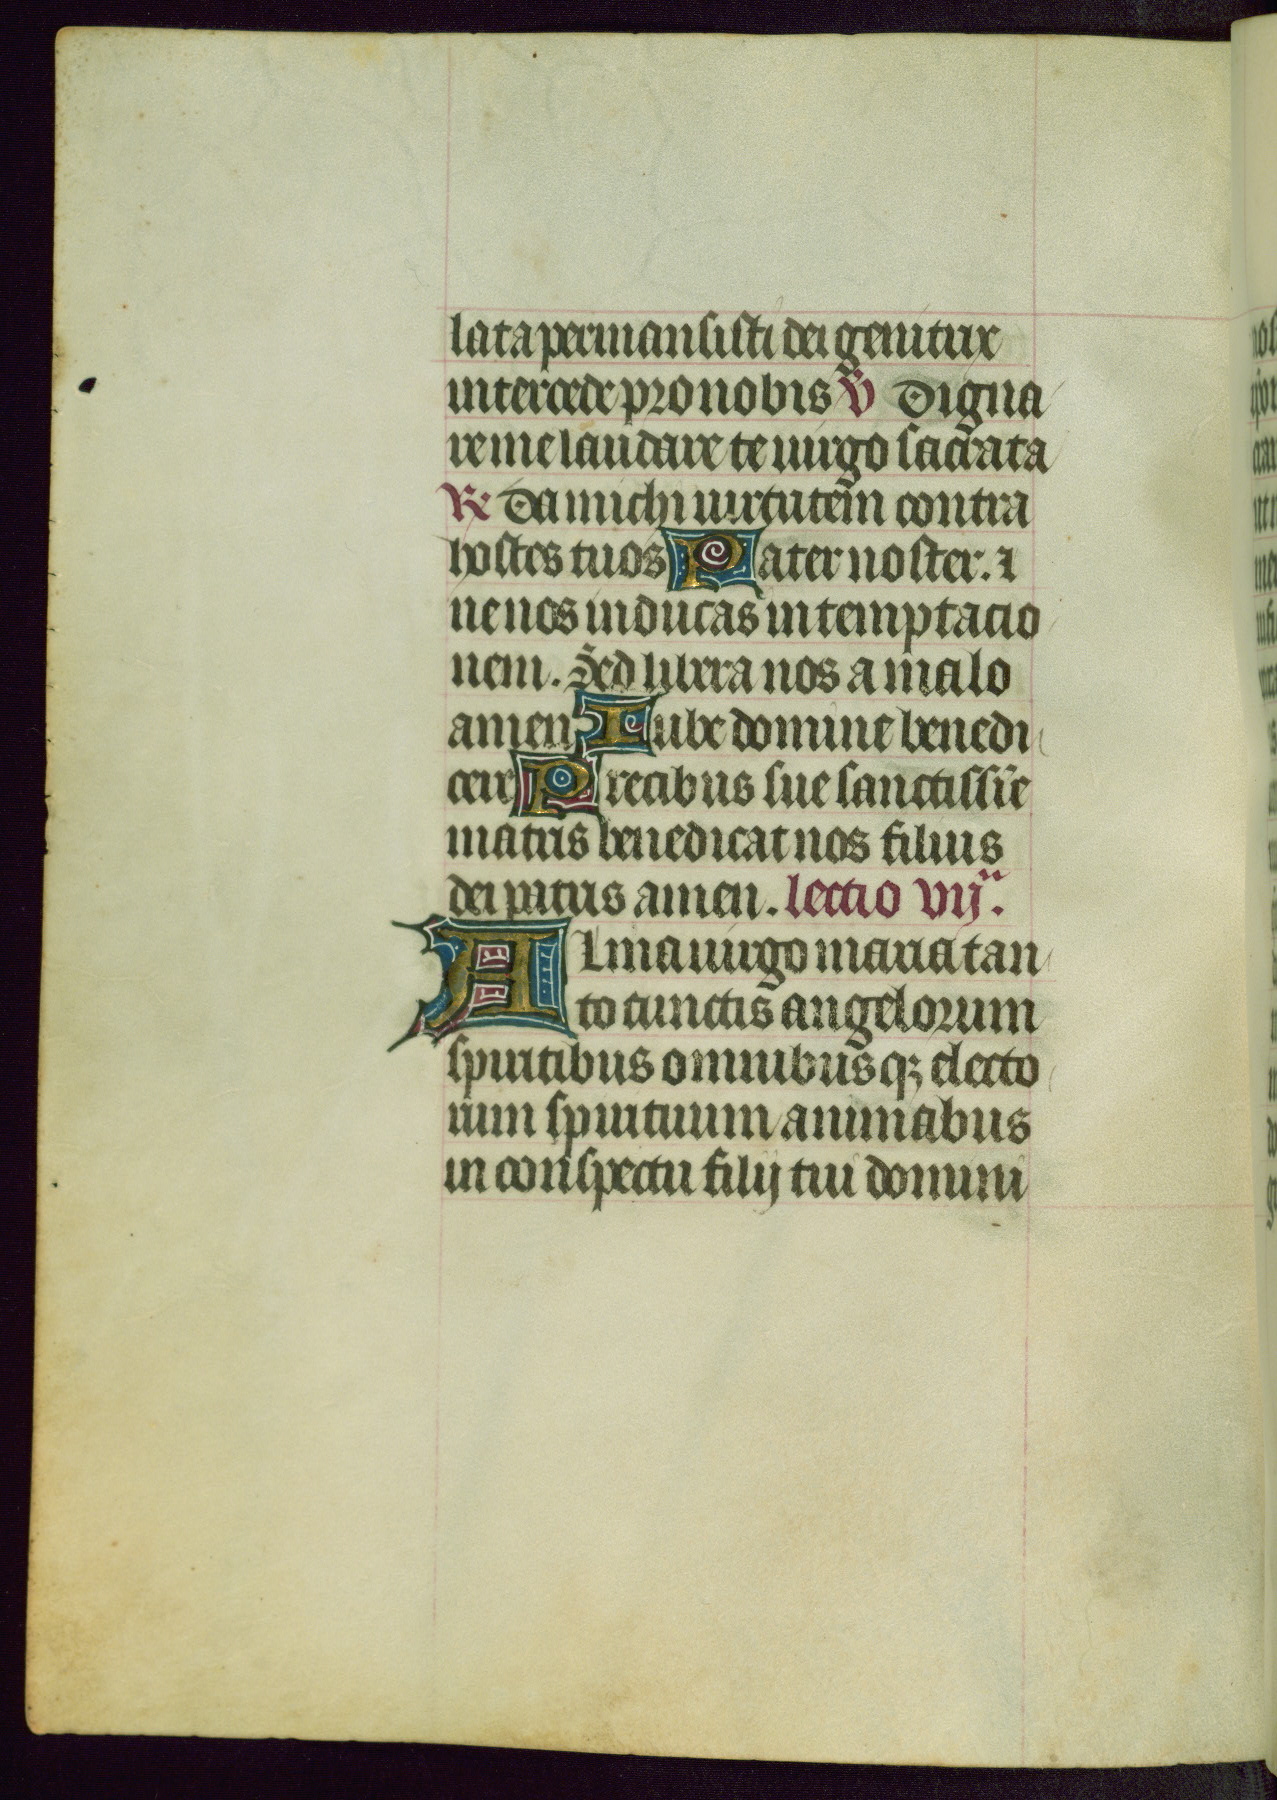 lata permansisti dei genitrix
intercede pro nobis V̄ Digna
re me laudare te uirgo sacrata
R̄ Da michi uirtutem contra
hostes tuos Pater noster. ⁊
ne nos inducas in temptacio
nem. Sed libera nos a malo
amen Iube domine benedi
cere Precibus sue sanctissīe
matris benedicat nos filius
dei patris amen. lectio vijᵃ.
Alma uirgo maria tan
to cunctis angelorum
spiritibus omnibusqꝫ electo
rum spirituum animabus
in conspectu filij tui domini